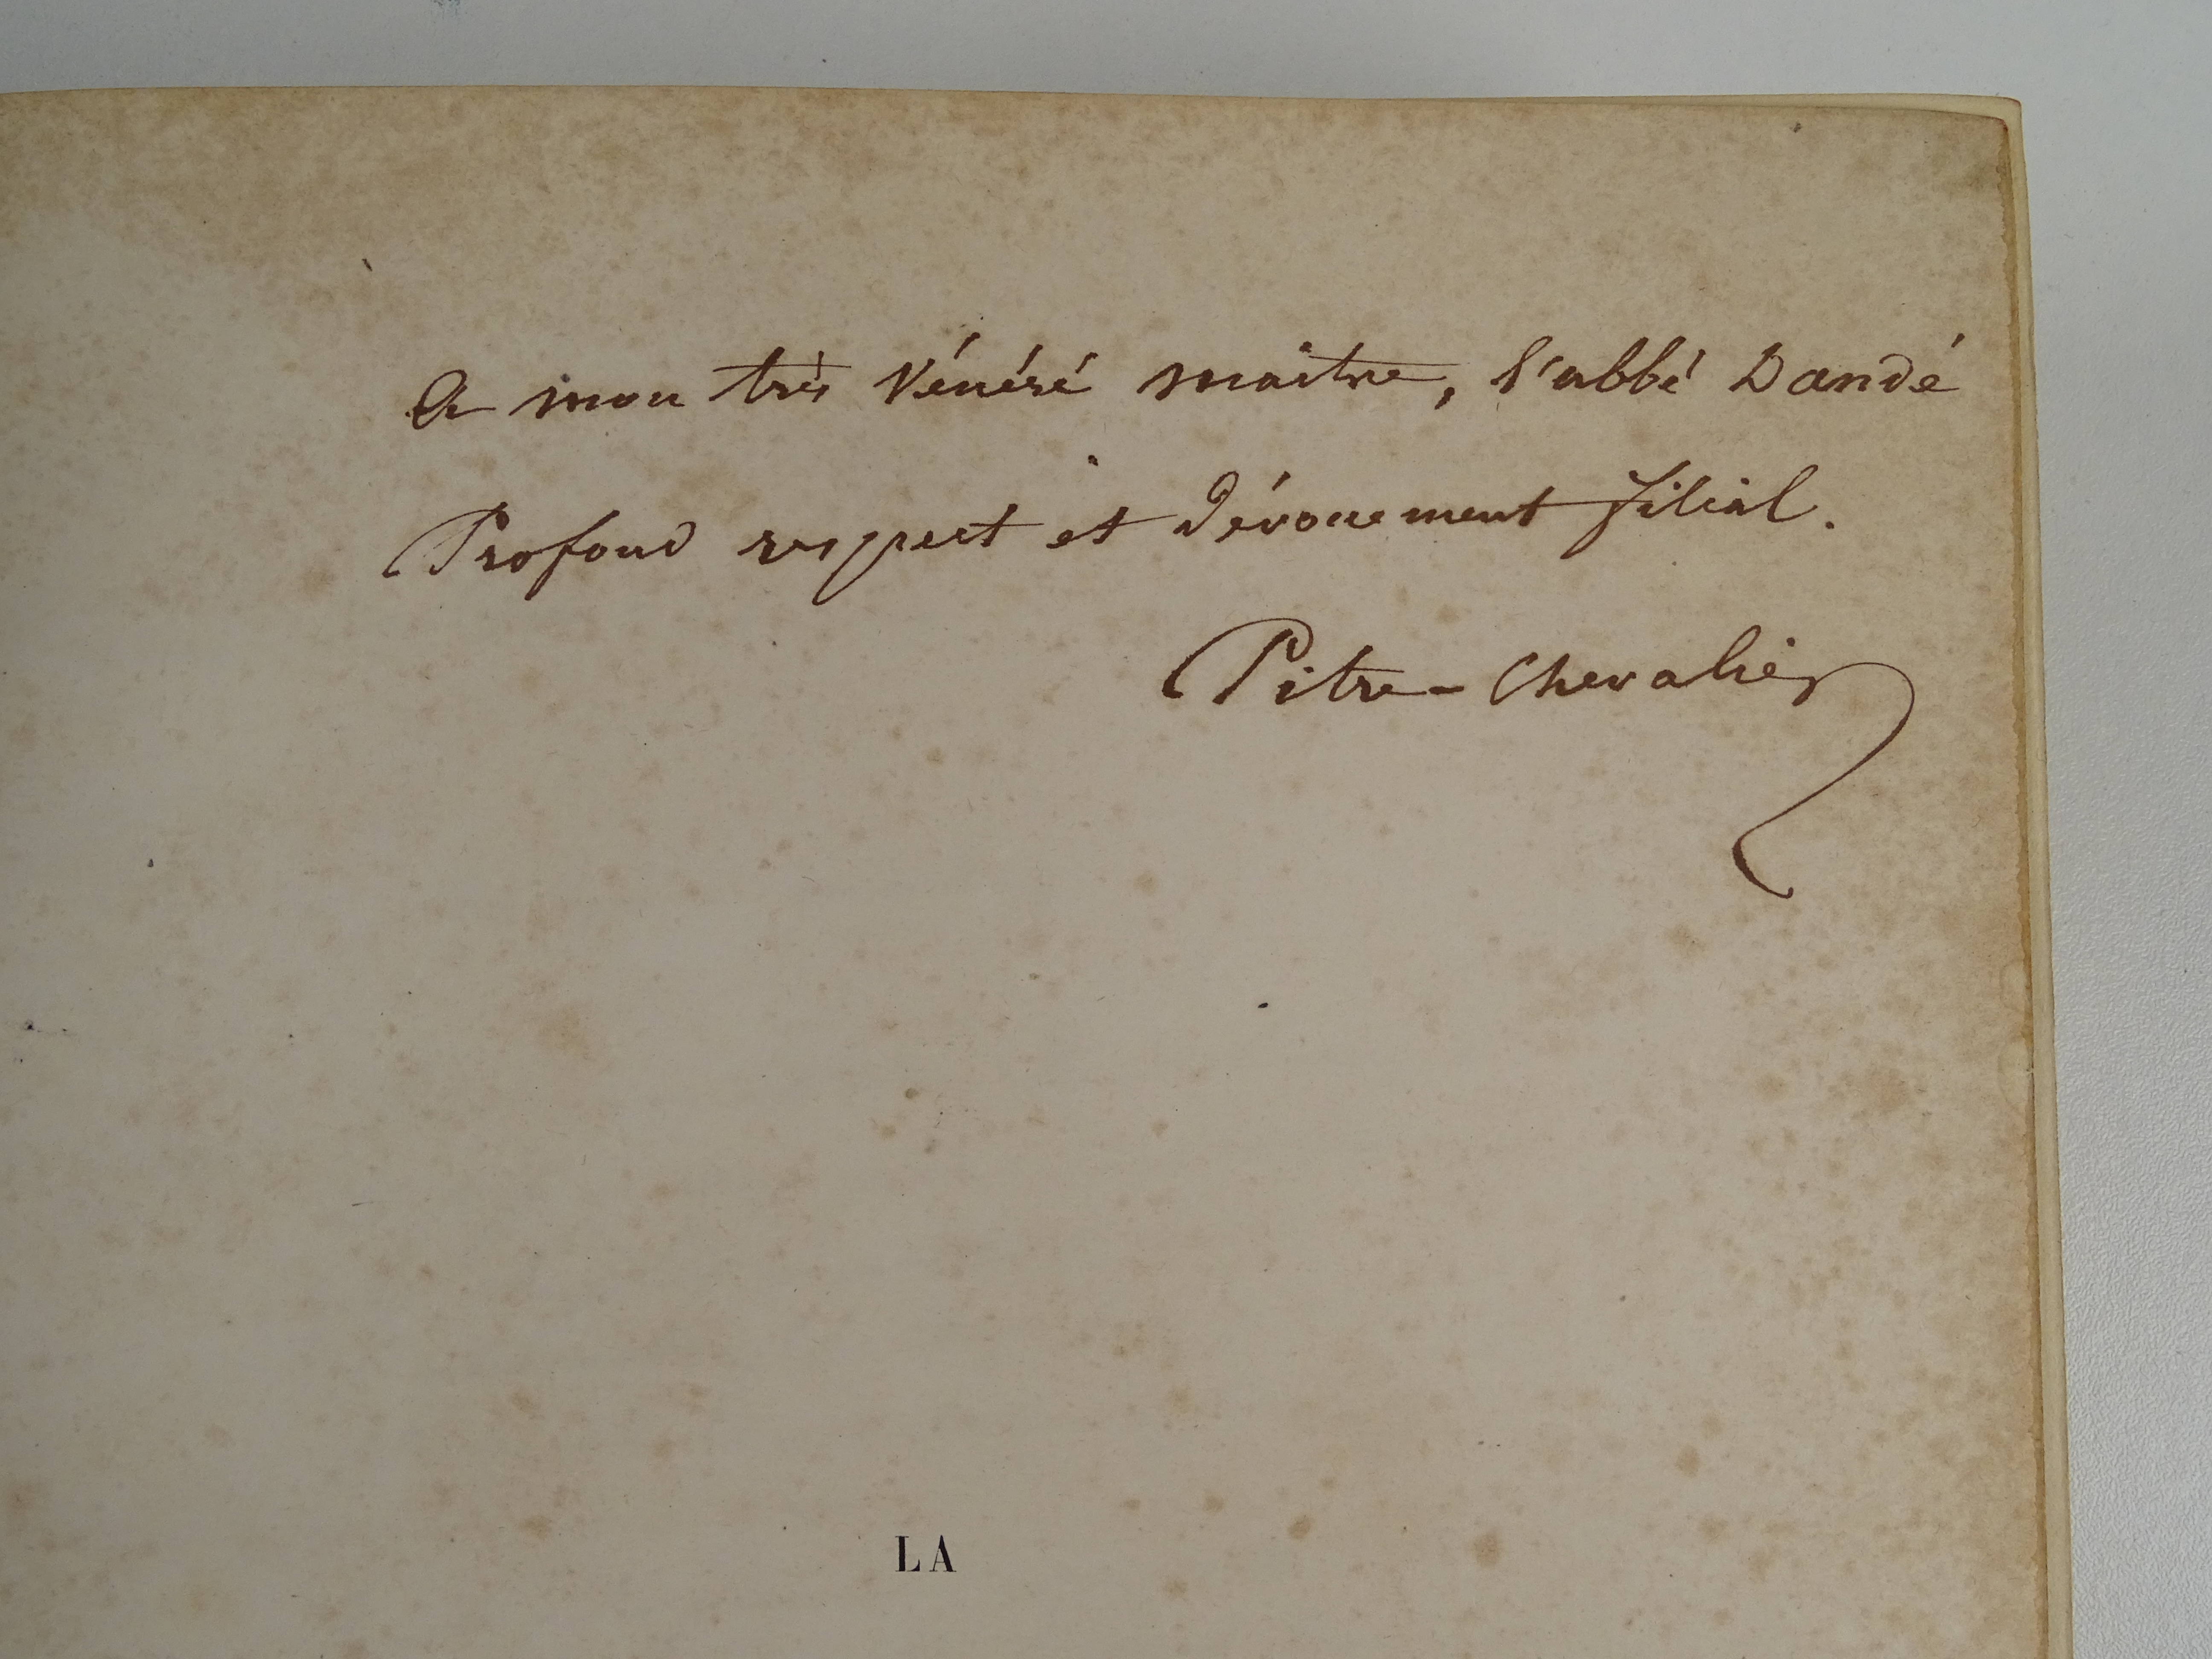 A mon très Vénéré maître, l'abbé Dandé
Profond respect et dévouement filial.
Pitre-Chevalier
LA